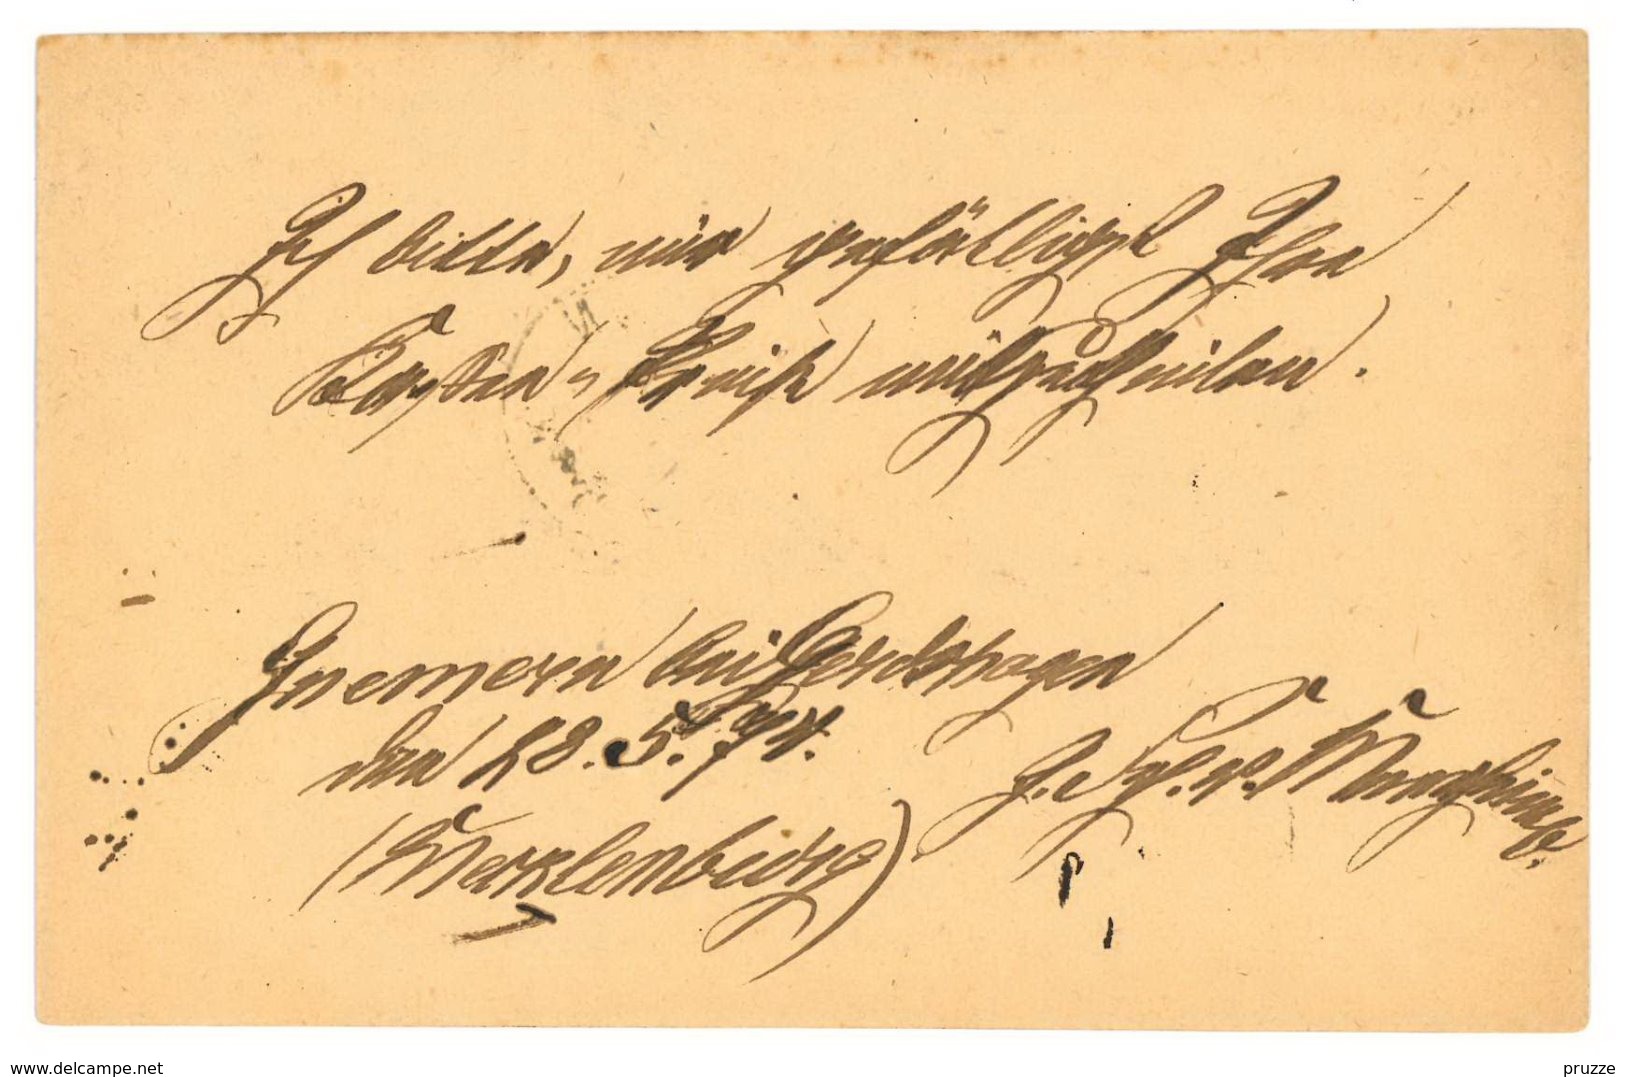 Ich bitte, mir gefälligst Ihre
Kosten-Preise mitzutheilen.
Gnemern bei Gerdshagen
den 28. 5. 94.
(Mecklenburg)
www.delcampe.net
pruzze